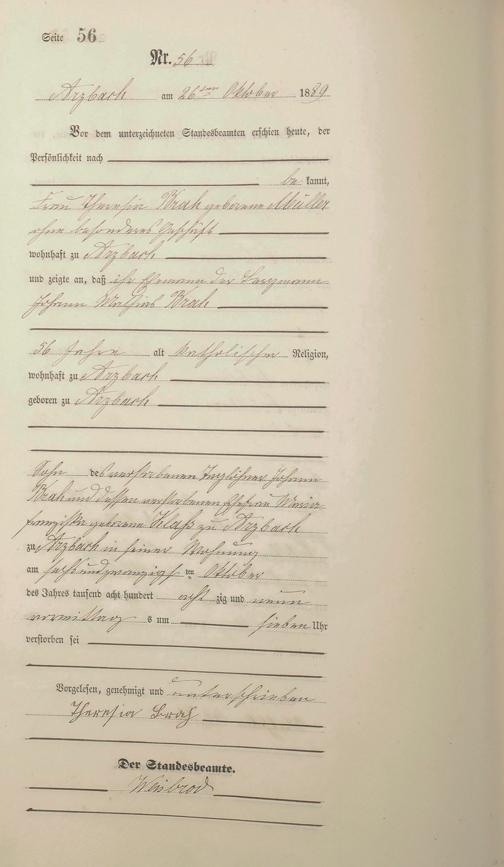 Seite 56
Nr. 56
Arzbach am 26ten Oktober 1889
Vor dem unterzeichneten Standesbeamten erschien heute, der
Persönlichkeit nach
be kannt,
Frau Theresia Brah geborene Müller
ohne besonderes Geschäft
wohnhaft zu Arzbach
und zeigte an, daß ihr Ehemann der Bergmann
Johann Mathias Brah
56 Jahre alt Katholischer Religion,
wohnhaft zu Arzbach
geboren zu Arzbach
Sohn des verstorbenen Taglöhner Johann
Brah und dessen verstorbenen Ehefrau Maria
Franziska geborene Klaß zu Arzbach
zu Arzbach in seiner Wohnung
am sechsundzwanzigsten Oktober
des Jahres tausend acht hundert acht zig und neun
vormittags um sieben Uhr
verstorben sei
Vorgelesen, genehmigt und unterschrieben
Theresia Brah
Der Standesbeamte.
Weisbrod